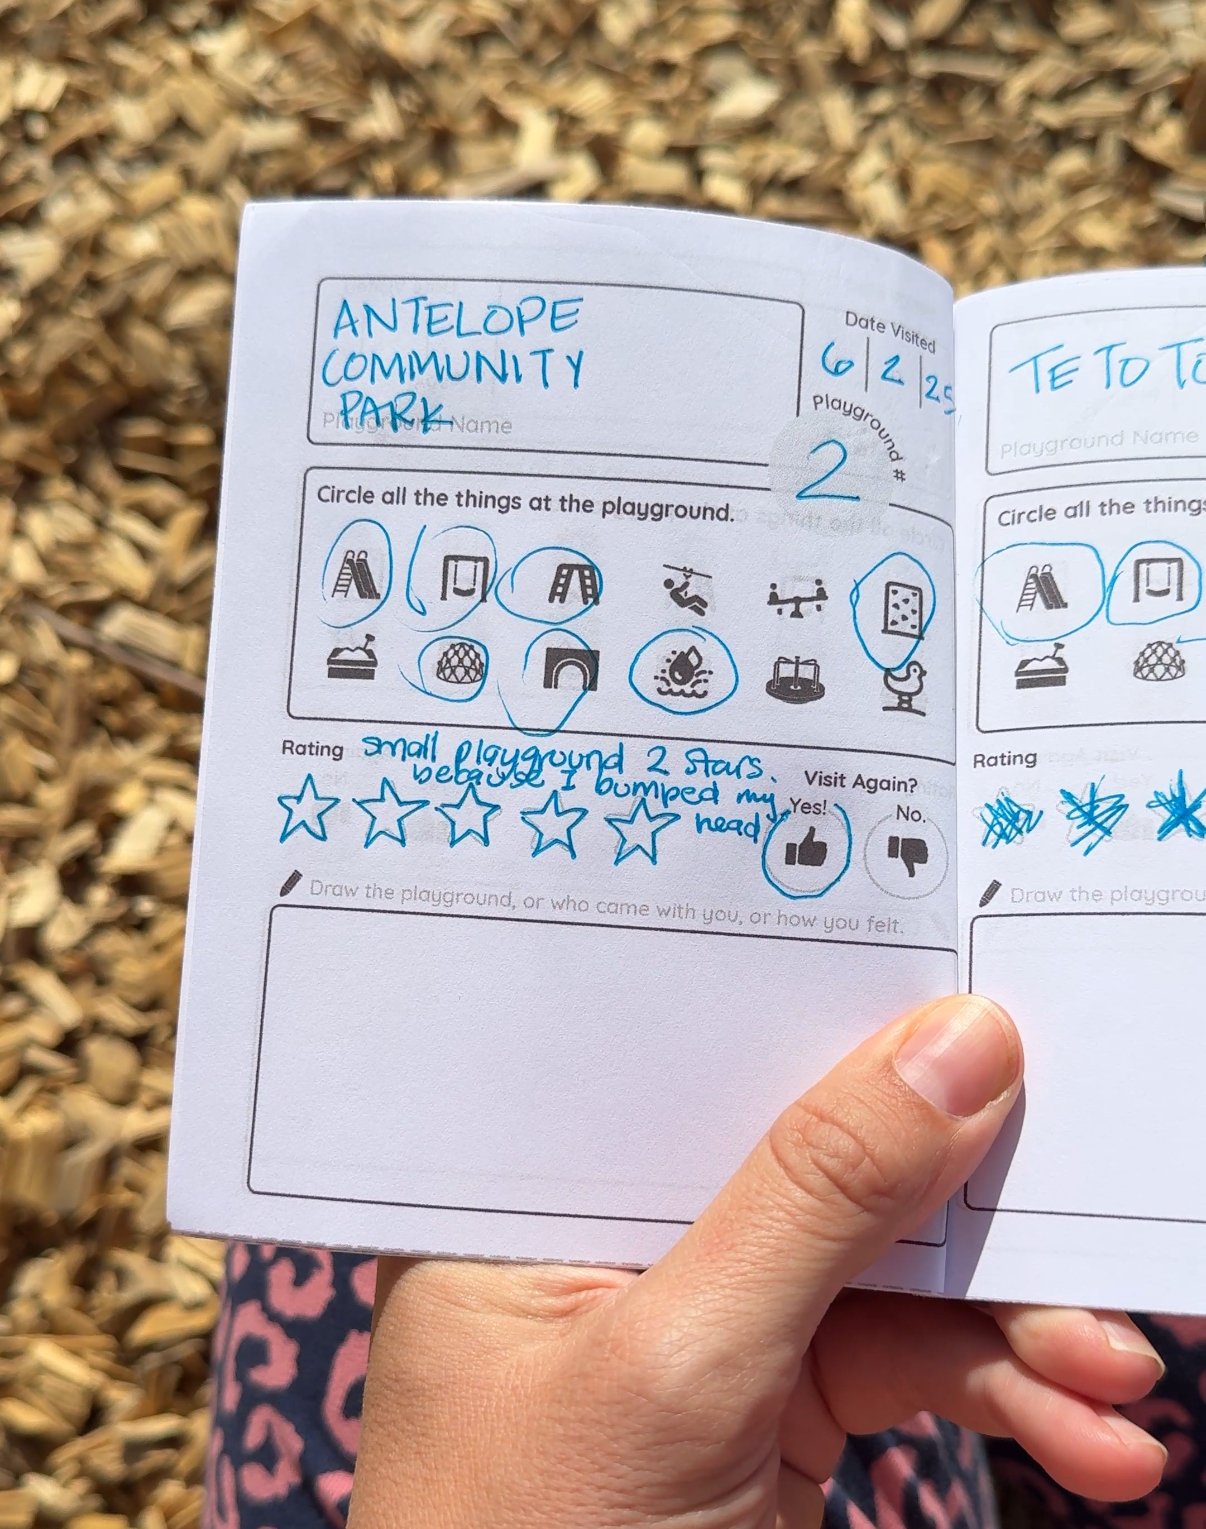 ANTELOPE
COMMUNITY
PARK
Playground Name
Date Visited
6|2|25
Playground #
2
Circle all the things at the playground.
Rating
small playground 2 stars.
because I bumped my
head
Visit Again?
Yes!
No.
Draw the playground, or who came with you, or how you felt.
TE TO TO
Playground Name
Circle all the things
Rating
Draw the playgrou